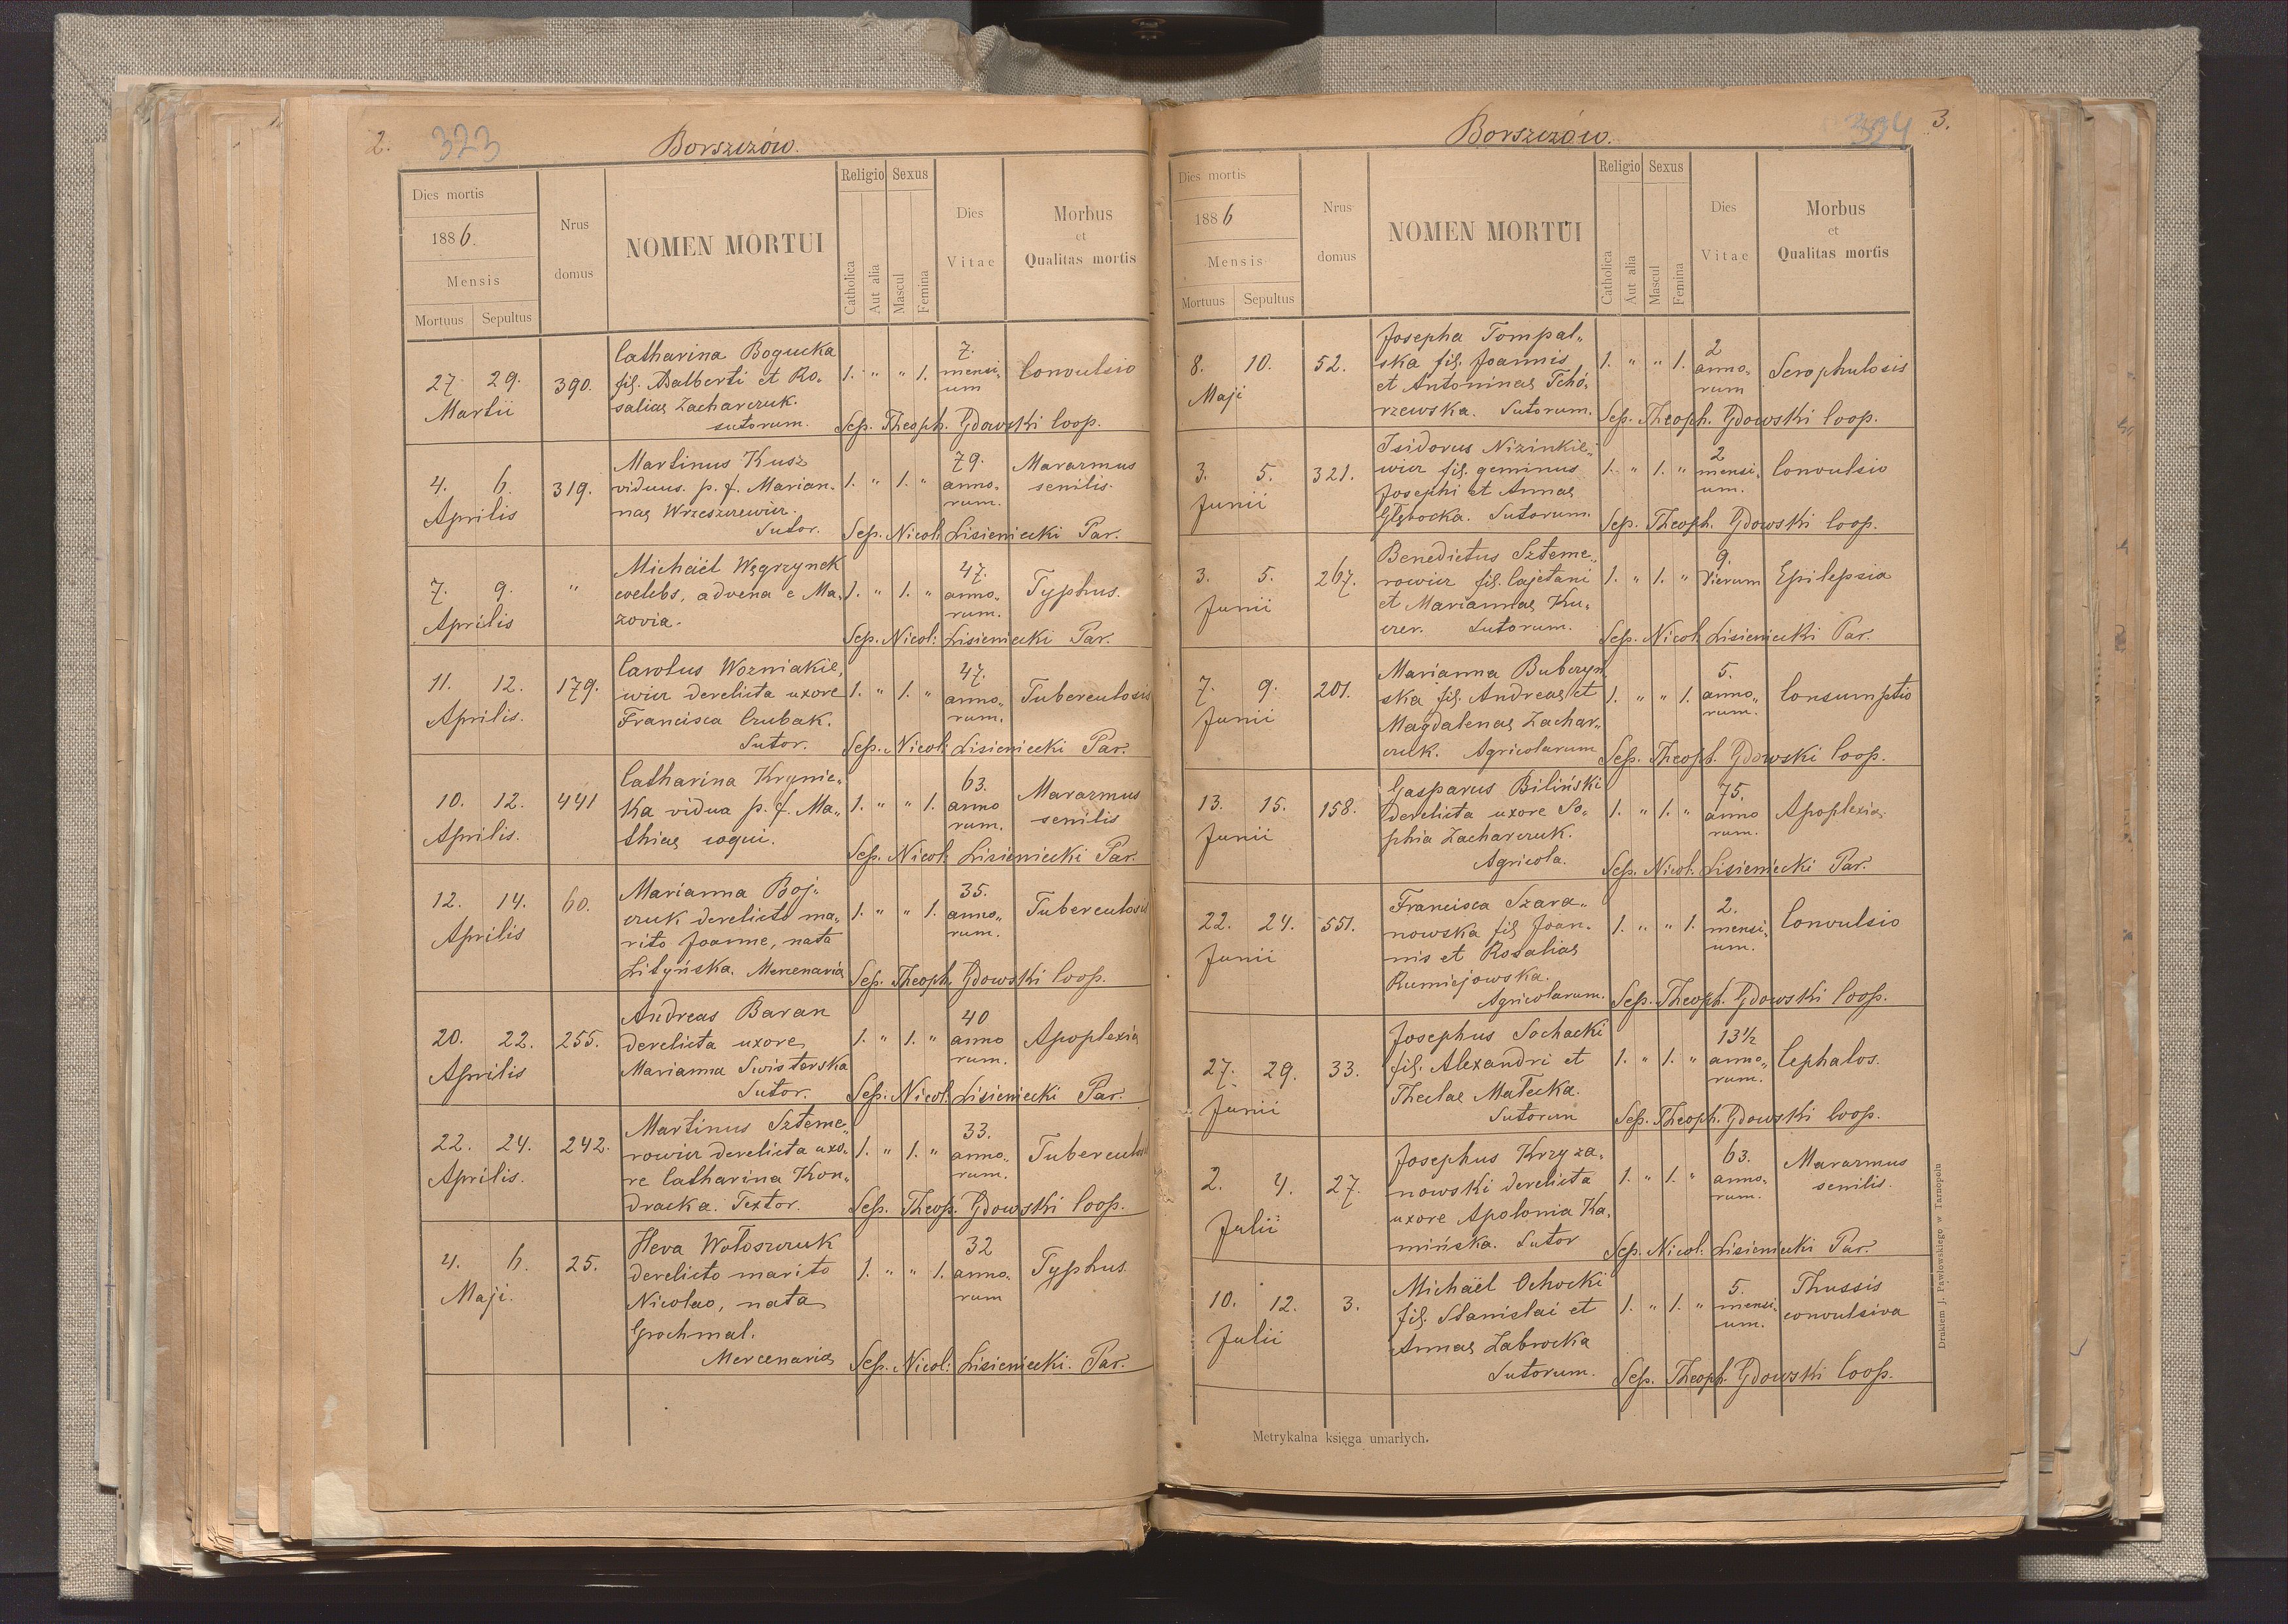 2.
373
Borszczów.
Dies mortis
1886.
Mensis
Mortuus
Sepultus
Nrus
domus
NOMEN MORTUI
Religio
Catholica
Aut alia
Sexus
Mascul
Femina
Dies
Vitae
Morbus
et
Qualitas mortis
27. 29.
Martii
390.
Catharina Bogucka
fil. Adalberti et Ro„
saliae Zacharczuk.
sutorum.
1. " " 1.
7.
mensi„
um
Convulsio
Sep. Theoph. Gdowski Coop.
4. 6.
Aprilis
319.
Martinus Kusz
viduus. p. f. Marian„
nae Wrzeszczewicz.
Sutor.
1. " 1. "
79.
anno„
rum.
Marazmus
senilis.
Sep. Nicol: Lisieniecki Par.
7. 9.
Aprilis
"
Michaël Węgrzynek
coelebs, advena e Ma„
zovia.
1. " 1. "
47.
anno„
rum.
Typhus.
Sep. Nicol: Lisieniecki Par.
11. 12.
Aprilis.
179.
Carolus Wozniakie„
wicz derelicta uxore
Francisca Czubak.
Sutor.
1. " 1. "
47.
anno„
rum.
Tuberculosis
Sep. Nicol: Lisieniecki Par.
10. 12.
Aprilis.
441
Catharina Krynic„
ka vidua p. f. Ma„
thiae coqui.
1. " " 1.
63.
anno
rum.
Marazmus
senilis
Sep. Nicol: Lisieniecki Par.
12. 14.
Aprilis
60.
Marianna Boj„
czuk derelicto ma„
rito Joanne, nata
Lityńska. Mercenaria
1. " " 1.
35.
anno„
rum.
Tuberculosis
Sep. Theoph. Gdowski Coop.
20. 22.
Aprilis
255.
Andreas Baran
derelicta uxore
Marianna Swisterska
Sutor.
1. " 1. "
40
anno
rum.
Apoplexia
Sep. Nicol: Lisieniecki Par.
22. 24.
Aprilis.
242.
Martinus Szteme„
rowicz derelicta uxo„
re Catharina Kon„
dracka. Textor.
1. " 1. "
33.
anno„
rum.
Sep. Theop. Gdowski Coop.
4. 6.
Maji.
25.
Heva Wołoszczuk
derelicto marito
Nicolao, nata
Grochmal.
Mercenaria
1. " " 1.
32
anno„
rum
Typhus
Sep. Nicol: Lisieniecki. Par.
3.
Borszczów.
Dies mortis
1886
Mensis
Mortuus
Sepultus
Nrus
domus
NOMEN MORTUI
Religio
Catholica
Aut alia
Sexus
Mascul
Femina
Dies
Vitae
Morbus
et
Qualitas mortis
8. 10.
Maji
52.
Josepha Tompal„
ska fil. Joannis
et Antoninae Tchó„
rzewska. Sutorum.
1. " " 1.
2
anno„
rum
Scrophulosis
Sep. Theoph. Gdowski Coop.
3. 5.
Junii
321.
Isidorus Nizinkie„
wicz fil. geminus
Josephi et Annae
Głębocka. Sutorum.
1. " 1. "
2
mensi„
um.
Convulsio
Sep. Theoph. Gdowski Coop.
3. 5.
Junii
267.
Benedictus Szteme„
rowicz fil. Cajetani
et Mariannae Ku„
czer. Sutorum.
1. " 1. "
9.
dierum
Epilepsia
Sep. Nicol: Lisieniecki Par.
7. 9.
Junii
201.
Marianna Buberyn
ska fil. Andreae et
Magdalenae Zachar„
czuk. Agricolarum
1. " " 1.
5.
anno„
rum.
Consumptio
Sep. Theoph. Gdowski Coop.
13. 15.
Junii
158.
Gasparus Biliński
derelicta uxore So„
phia Zacharczuk.
Agricola.
1. " 1. "
75.
anno
rum.
Apoplexia
Sep. Nicol: Lisieniecki Par.
22. 24.
Junii
551.
Francisca Szara„
nowska fil. Joan„
nis et Rosaliae
Rumiejowska.
Agricolarum.
1. " " 1.
2.
mensi„
um.
Convulsio
Sep. Theoph. Gdowski Coop.
27. 29.
Junii
33.
Josephus Sochacki
fil. Alexandri et
Theclae Małecka.
Sutorum
1. " 1. "
13½
anno„
rum.
Cephalos.
Sep. Theoph. Gdowski Coop.
2. 4.
Julii
27.
Josephus Krzyza„
nowski derelicta
uxore Apolonia Ka„
mińska. Sutor
1. " 1. "
63.
anno„
rum.
Marazmus
senilis.
Sep. Nicol: Lisieniecki Par.
10. 12.
Julii
3.
Michaël Ochocki
fil. Stanislai et
Annae Zabrocka
Sutorum.
1. " 1. "
5.
mensi„
um.
Thussis
convulsiva
Sep. Theoph. Gdowski Coop.
Metrykalna księga umarłych.
Drukiem J. Pawłowskiego w Tarnopolu